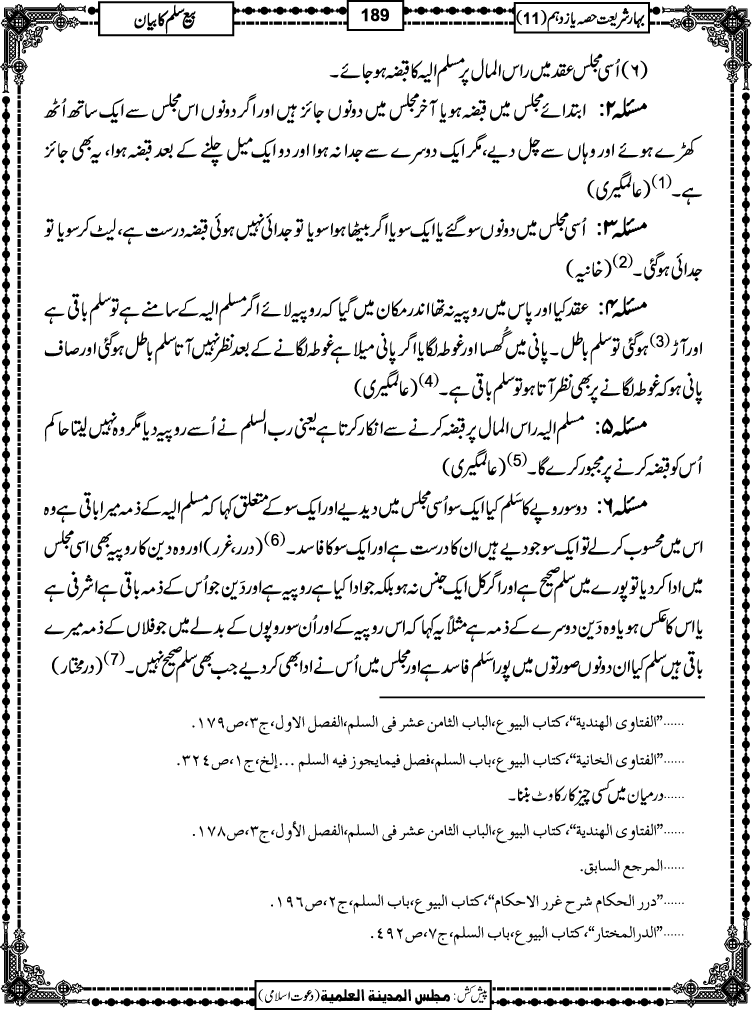 بہار شریعت حصہ یازدہم (11)
189
بیع سلم کا بیان
(۶) اُسی مجلس عقد میں راس المال پر مسلم الیہ کا قبضہ ہوجائے۔
مسئلہ ۲: ابتدائے مجلس میں قبضہ ہو یا آخر مجلس میں دونوں جائز ہیں اور اگر دونوں اس مجلس سے ایک ساتھ اُٹھ
کھڑے ہوئے اور وہاں سے چل دیے، مگر ایک دوسرے سے جدا نہ ہوا اور دو ایک میل چلنے کے بعد قبضہ ہوا، یہ بھی جائز
ہے۔(1) (عالمگیری)
مسئلہ ۳: اُسی مجلس میں دونوں سو گئے یا ایک سویا اگر بیٹھا ہوا سویا تو جدائی نہیں ہوئی قبضہ درست ہے، لیٹ کر سویا تو
جدائی ہوگئی۔(2) (خانیہ)
مسئلہ ۴: عقد کیا اور پاس میں روپیہ نہ تھا اندر مکان میں گیا کہ روپیہ لائے اگر مسلم الیہ کے سامنے ہے تو سلم باقی ہے
اور آڑ (3) ہوگئی تو سلم باطل۔ پانی میں گُھسا اور غوطہ لگایا اگر پانی میلا ہے غوطہ لگانے کے بعد نظر نہیں آتا سلم باطل ہوگئی اور صاف
پانی ہو کہ غوطہ لگانے پر بھی نظر آتا ہو تو سلم باقی ہے۔(4) (عالمگیری)
مسئلہ ۵: مسلم الیہ راس المال پر قبضہ کرنے سے انکار کرتا ہے یعنی رب السلم نے اُسے روپیہ دیا مگر وہ نہیں لیتا حاکم
اُس کو قبضہ کرنے پر مجبور کرے گا۔(5) (عالمگیری)
مسئلہ ۶: دو سو روپے کا سَلم کیا ایک سو اُسی مجلس میں دیدیے اور ایک سو کے متعلق کہا کہ مسلم الیہ کے ذمہ میرا باقی ہے وہ
اس میں محسوب کرلے تو ایک سو جو دیے ہیں ان کا درست ہے اور ایک سو کا فاسد۔(6) (درر، غرر) اور وہ دین کا روپیہ بھی اسی مجلس
میں ادا کردیا تو پورے میں سلم صحیح ہے اور اگر کل ایک جنس نہ ہو بلکہ جو ادا کیا ہے روپیہ ہے اور دَین جو اُس کے ذمہ باقی ہے اشرفی ہے
یا اس کا عکس ہو یا وہ دَین دوسرے کے ذمہ ہے مثلاً یہ کہا کہ اس روپیہ کے اور اُن سو روپوں کے بدلے میں جو فلاں کے ذمہ میرے
باقی ہیں سلم کیا ان دونوں صورتوں میں پورا سَلم فاسد ہے اور مجلس میں اُس نے ادا بھی کردیے جب بھی سلم صحیح نہیں۔(7) (درمختار)
......”الفتاوی الهندية“، كتاب البيوع، الباب الثامن عشر فی السلم، الفصل الاول، ج۳، ص۱۷۹.
......”الفتاوی الخانية“، كتاب البيوع، باب السلم، فصل فيمايجوز فيه السلم ...إلخ، ج۱، ص۳۲٤.
......درمیان میں کسی چیز کا رکاوٹ بننا۔
......”الفتاوی الهندية“، كتاب البيوع، الباب الثامن عشر فی السلم، الفصل الأول، ج۳، ص۱۷۸.
......المرجع السابق.
......”درر الحكام شرح غرر الاحكام“، كتاب البيوع، باب السلم، ج۲، ص۱۹٦.
......”الدرالمختار“، كتاب البيوع، باب السلم، ج۷، ص٤۹۲.
پیش کش: مجلس المدینة العلمیة (دعوت اسلامی)